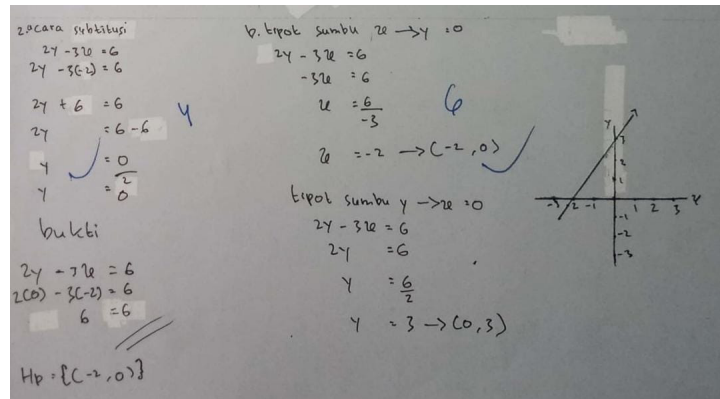 2. a cara subtitusi
2y - 3x = 6
2y - 3(-2) = 6
2y + 6 = 6
2y = 6 - 6
y = 0/2
y = 0
bukti
2y - 3x = 6
2(0) - 3(-2) = 6
6 = 6
Hp = {(-2, 0)}
4
b. tipot sumbu x → y = 0
2y - 3x = 6
-3x = 6
x = 6/-3
x = -2 → (-2, 0)
6
tipot sumbu y → x = 0
2y - 3x = 6
2y = 6
y = 6/2
y = 3 → (0, 3)
Y
3
2
1
-3 -2 -1 1 2 3
-1
-2
-3